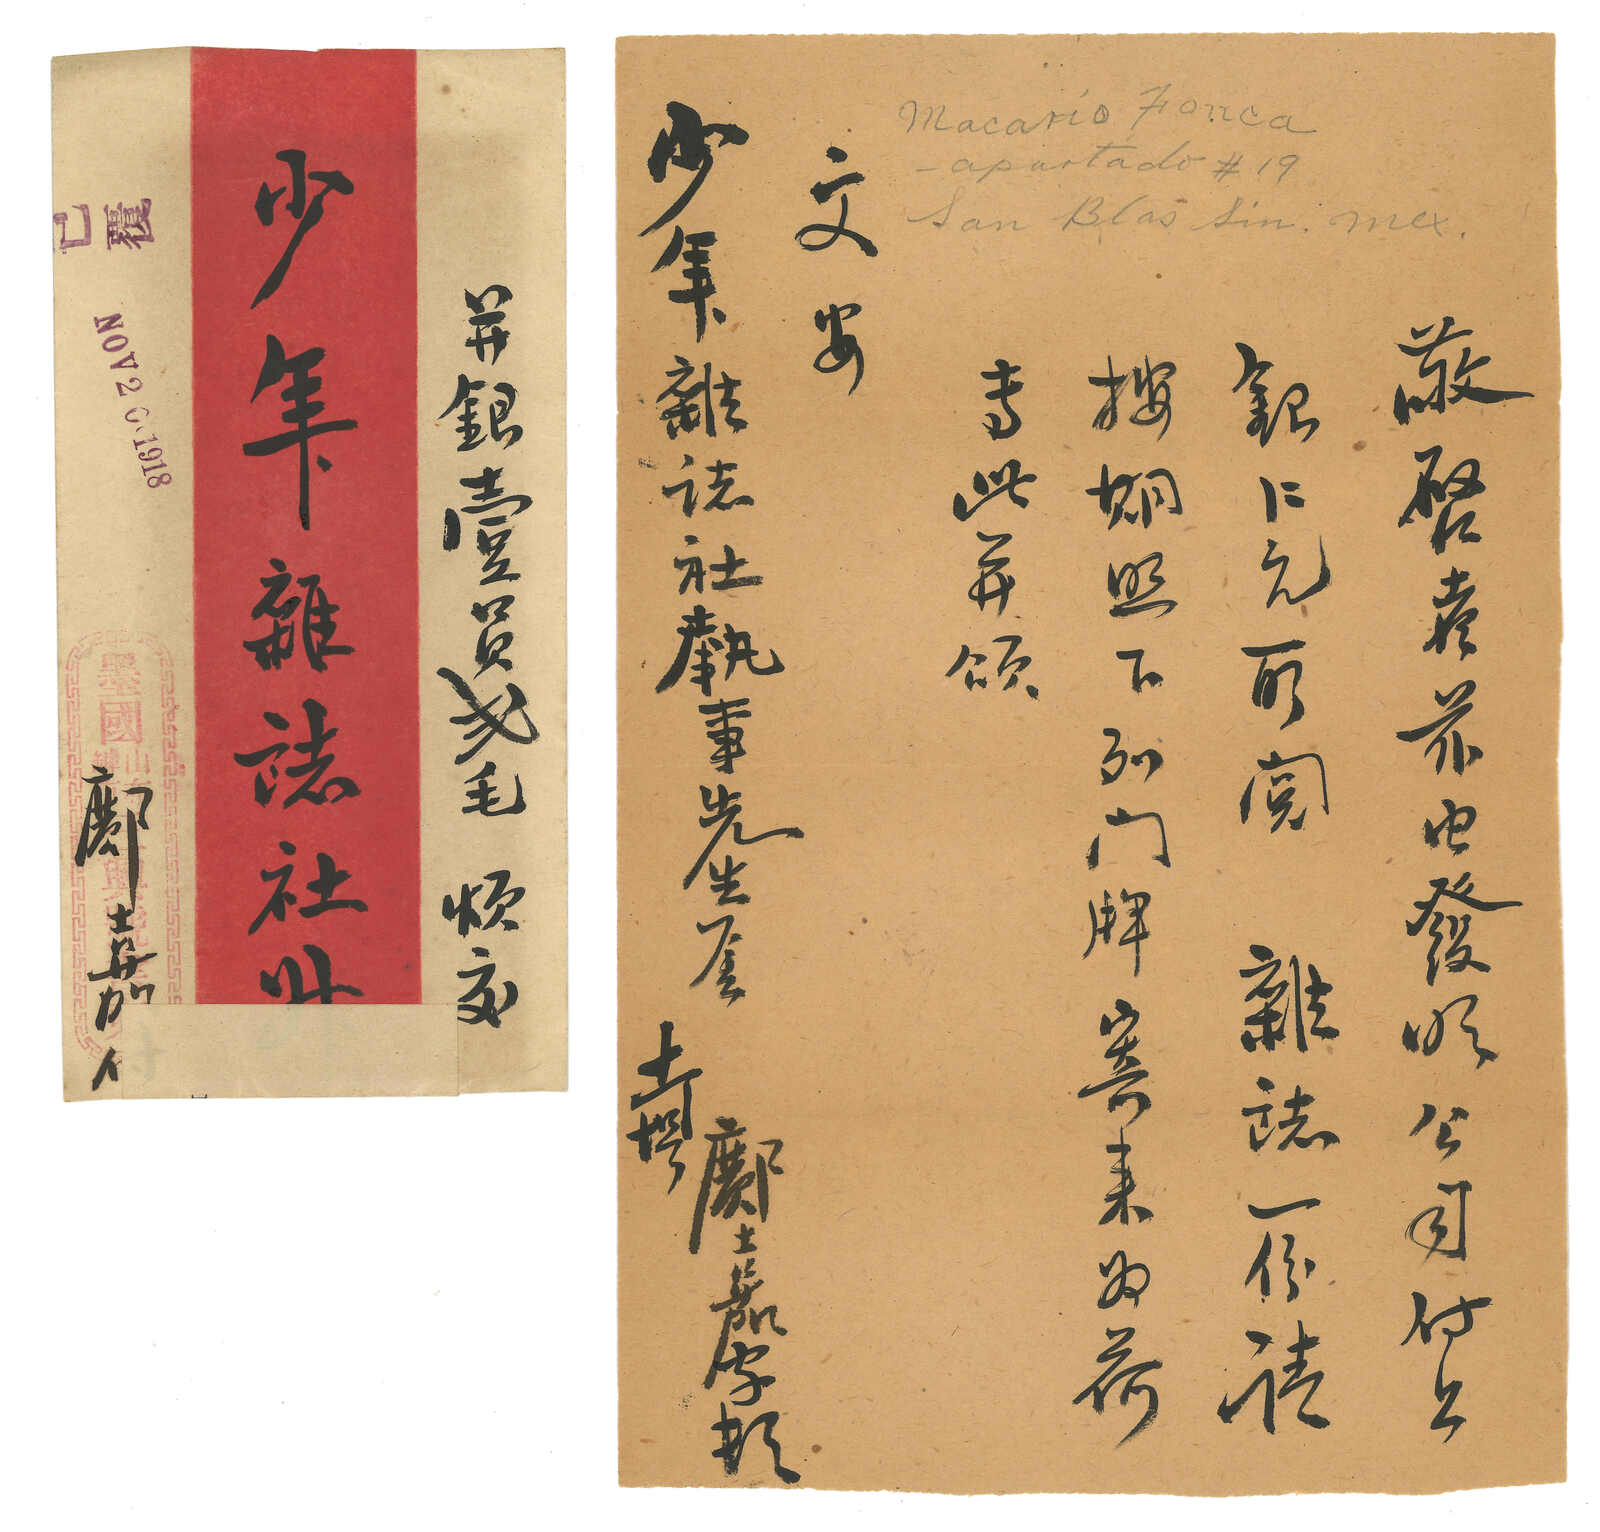 并銀壹員弍毛 煩交
少年雜誌社
鄺士嘉
已覆
NOV 20 1918
墨國
Macario Fonca
apartado #19
San Blas Sin. Mex.
敬啓者茲由發明公司付上
銀仁元 訂閱 雜誌一份 請
按期照下列門牌寄來為荷
專此并頌
文安
少年雜誌社執事先生 鑒
鄺士嘉字頓